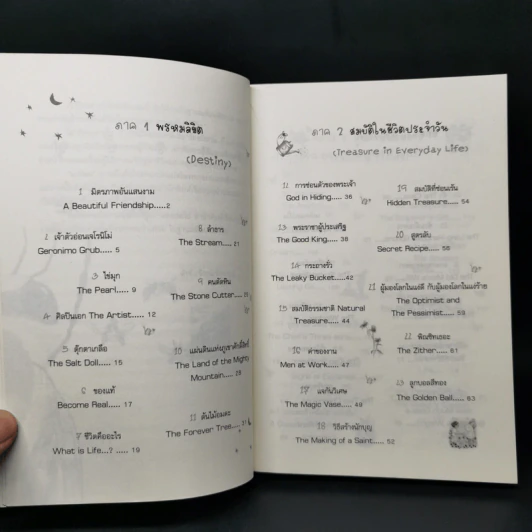 ภาค 1 พรหมลิขิต
(Destiny)
1 มิตรภาพอันแสนงาม
A Beautiful Friendship.....2
2 เจ้าตัวอ่อนเจโรนิโม่
Geronimo Grub..... 5
3 ไข่มุก
The Pearl..... 9
4 ศิลปินเอก The Artist..... 13
5 ตุ๊กตาเกลือ
The Salt Doll..... 15
6 ของแท้
Become Real..... 17
7 ชีวิตคืออะไร
What is Life...? ..... 19
8 ลำธาร
The Stream..... 21
9 คนตัดหิน
The Stone Cutter..... 25
10 แผ่นดินแห่งภูเขาศักดิ์สิทธิ์
The Land of the Mighty
Mountain..... 29
11 ต้นไม้อมตะ
The Forever Tree..... 31
ภาค 2 สมบัติในชีวิตประจำวัน
(Treasure in Everyday Life)
12 การซ่อนตัวของพระเจ้า
God in Hiding..... 36
13 พระราชาผู้ประเสริฐ
The Good King..... 38
14 กระถางรั่ว
The Leaky Bucket.....42
15 สมบัติธรรมชาติ Natural
Treasure..... 44
16 ค่าของงาน
Men at Work..... 47
17 แจกันวิเศษ
The Magic Vase..... 49
18 วิธีสร้างนักบุญ
The Making of a Saint..... 52
19 สมบัติที่ซ่อนเร้น
Hidden Treasure..... 54
20 สูตรลับ
Secret Recipe..... 56
21 ผู้มองโลกในแง่ดี กับผู้มองโลกในแง่ร้าย
The Optimist and
The Pessimist..... 59
22 พิณซิทเธอะ
The Zither..... 61
23 ลูกบอลสีทอง
The Golden Ball..... 63